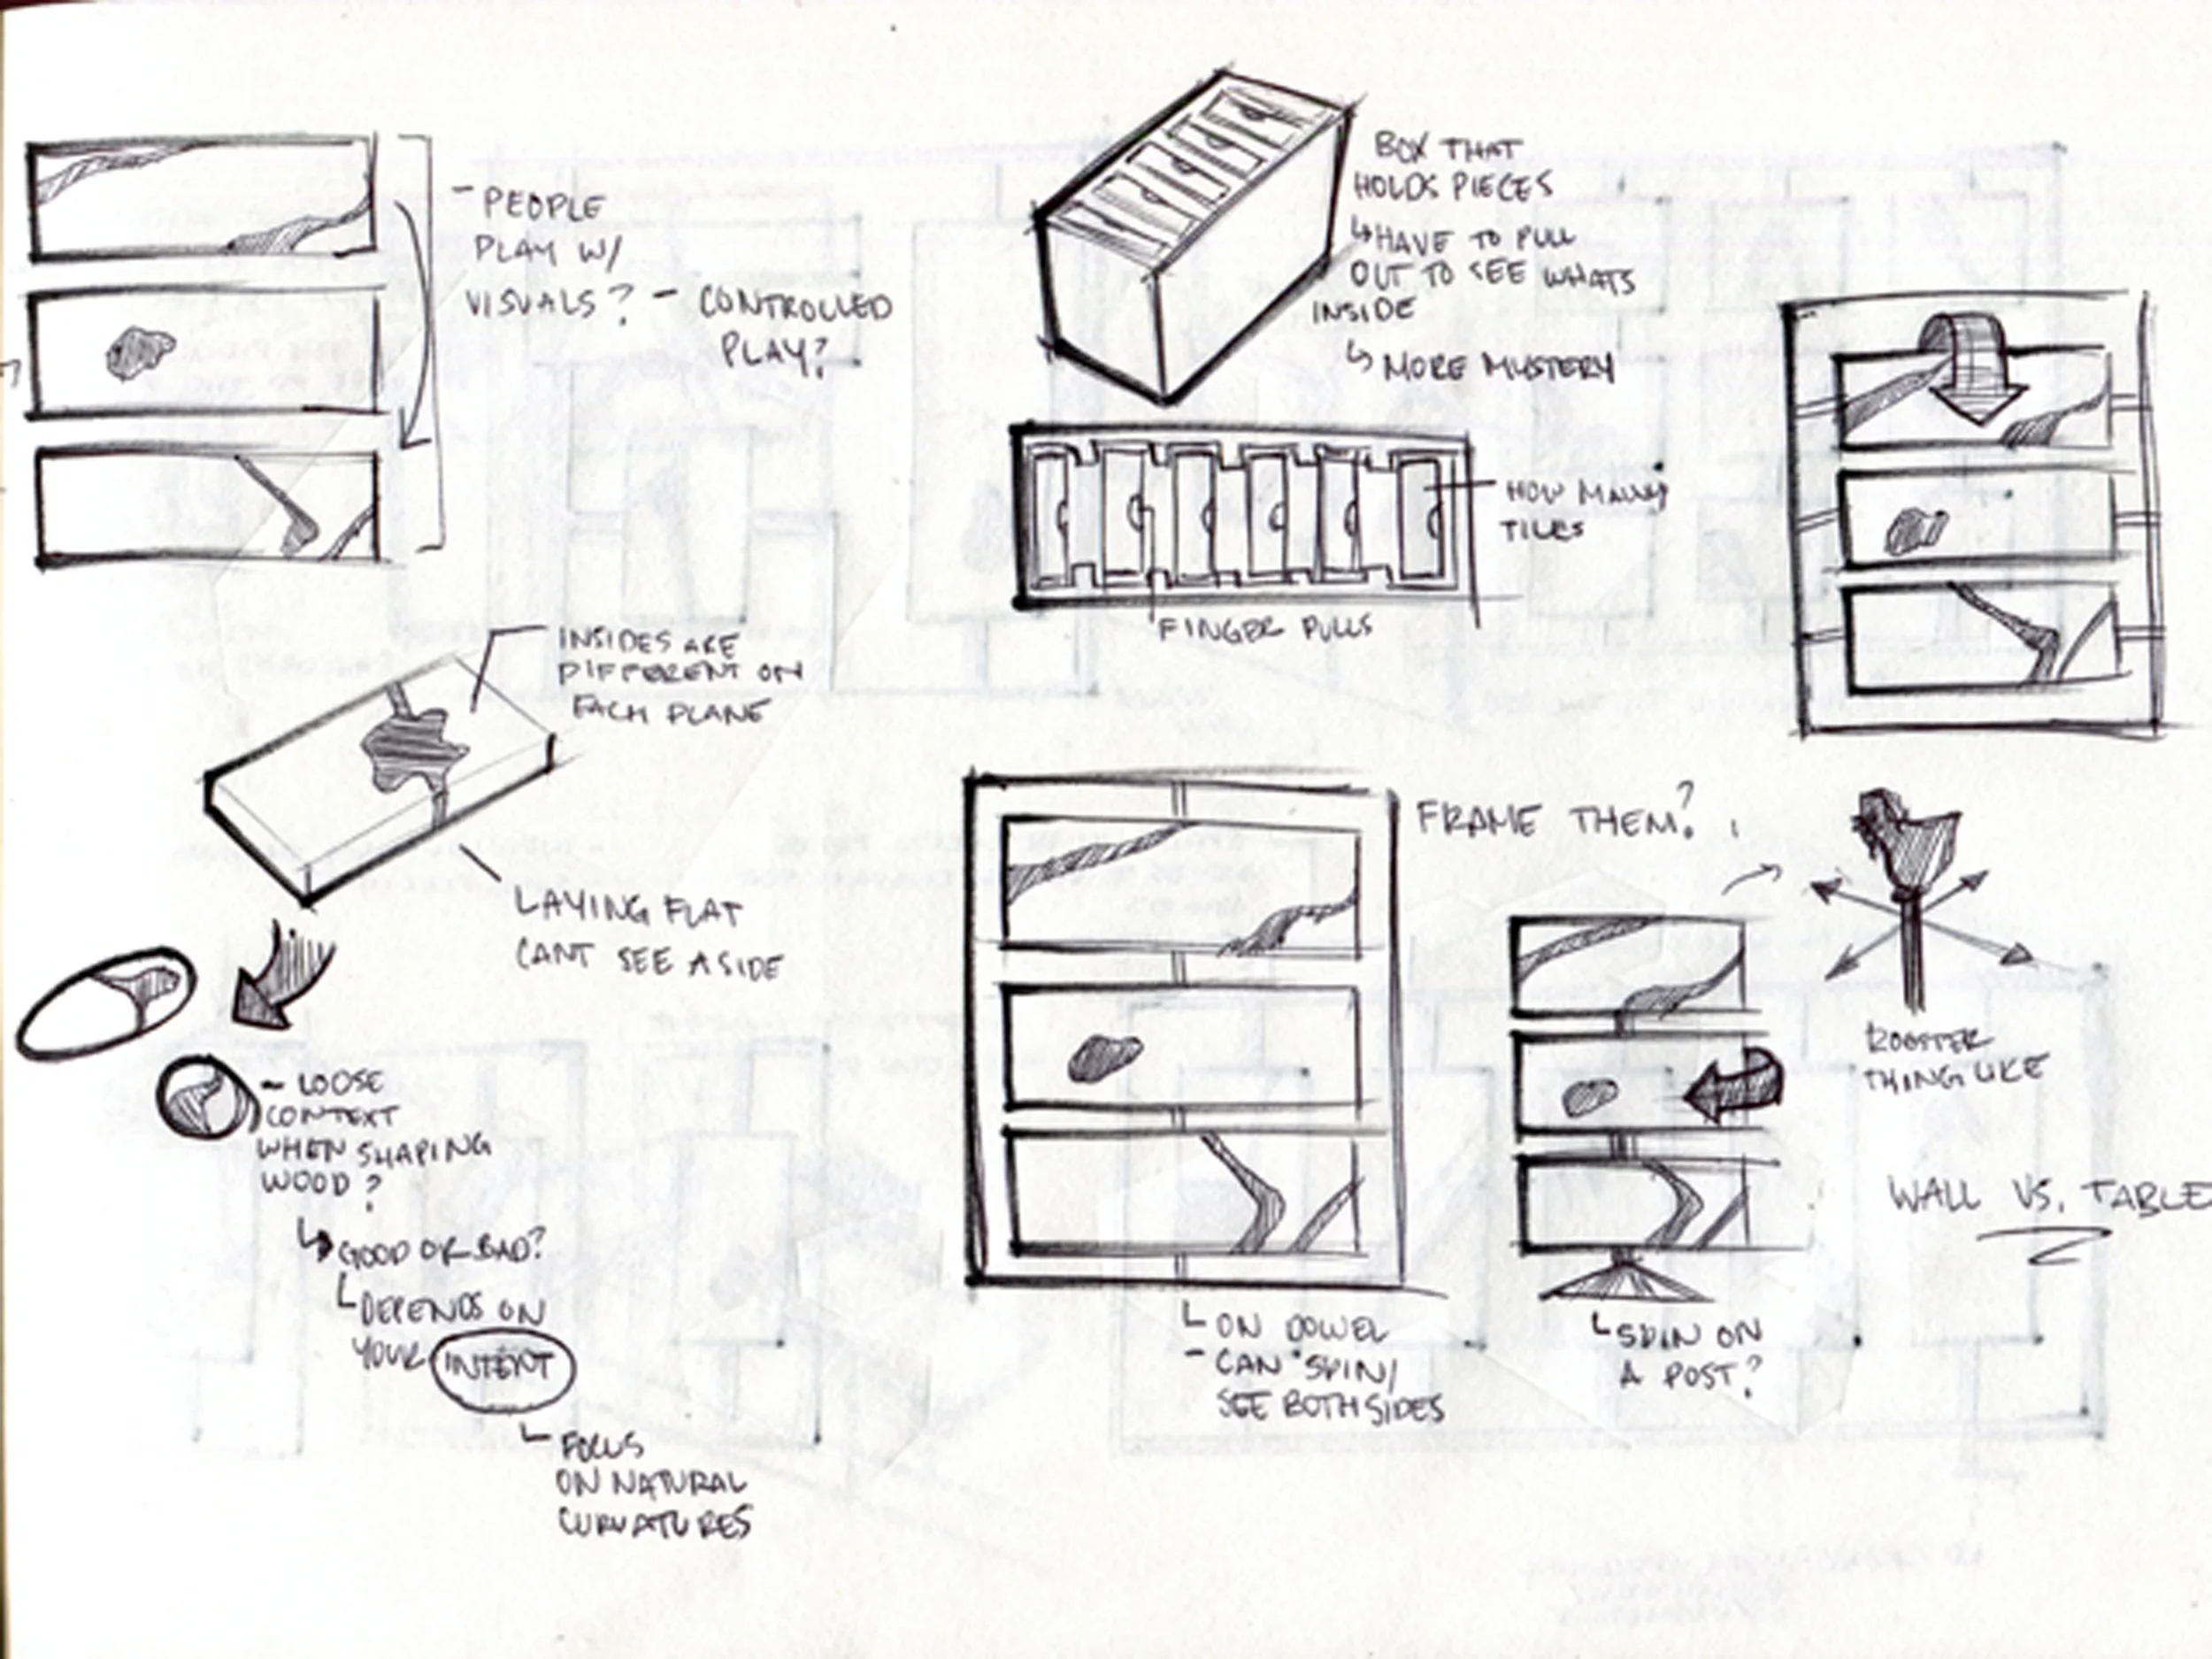 - PEOPLE
PLAY W/
VISUALS? - CONTROLLED
PLAY?
BOX THAT
HOLDS PIECES
↳ HAVE TO PULL
OUT TO SEE WHATS
INSIDE
↳ MORE MYSTERY
HOW MANY
TILES
FINGER PULLS
INSIDES ARE
DIFFERENT ON
EACH PLANE
LAYING FLAT
CANT SEE A SIDE
- LOOSE
CONTEXT
WHEN SHAPING
WOOD?
↳ GOOD OR BAD?
↳ DEPENDS ON
YOUR INTENT
↳ FOCUS
ON NATURAL
CURVATURES
FRAME THEM?
↳ ON DOWEL
- CAN SPIN/
SEE BOTH SIDES
↳ SPIN ON
A POST?
ROOSTER
THING LIKE
WALL VS. TABLE